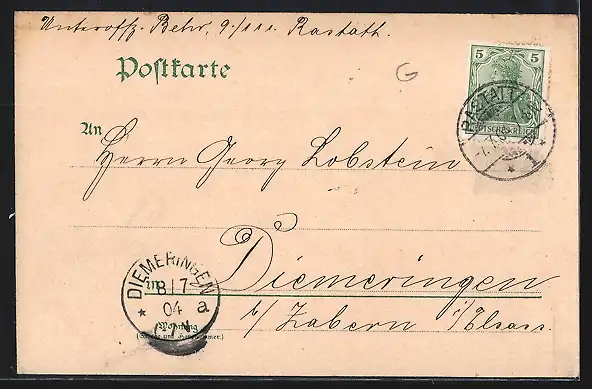 Unteroffz. Behr, 9./111. Rastatt.
5 5
DEUTSCHES REICH
RASTATT
Postkarte
An
Herrn Georg Lobstein
G
in Diemeringen
b/ Zabern i/Elsass.
DIEMERINGEN
8/7
04
a
Wohnung